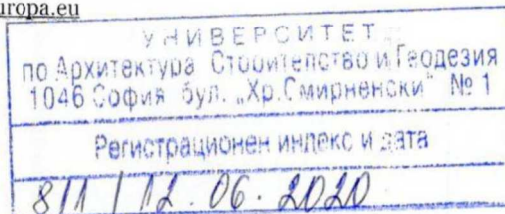 uropa.eu
УНИВЕРСИТЕТ
по Архитектура Строителство и Геодезия
1046 София бул. „Хр.Смирненски“ № 1
Регистрационен индекс и дата
811 / 12.06.2020